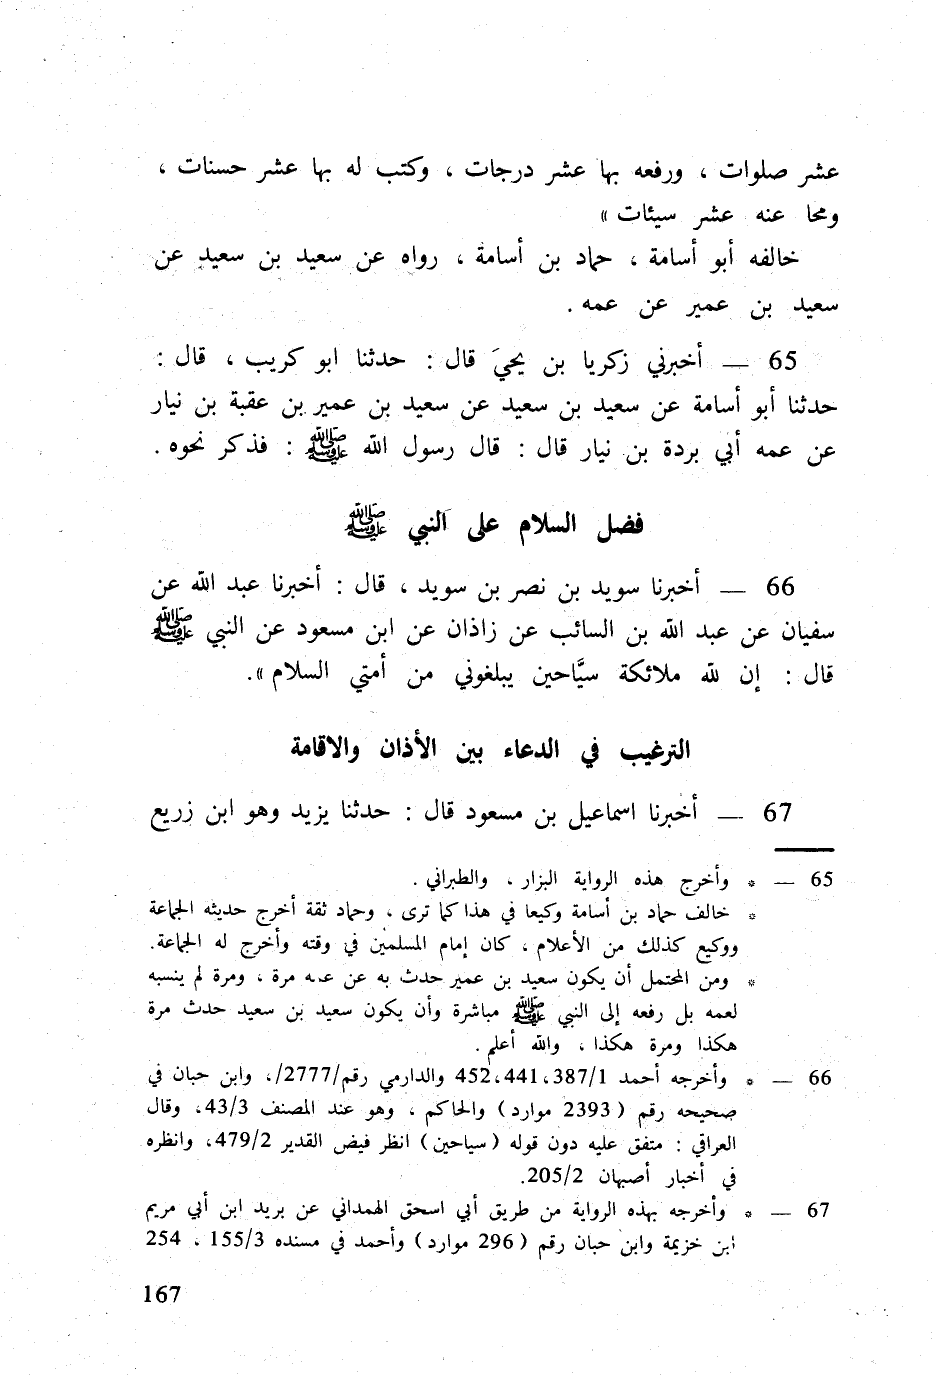 عشر صلوات ، ورفعه بها عشر درجات ، وكتب له بها عشر حسنات ،
ومحا عنه عشر سيئات »
خالفه أبو أسامة ، حماد بن أسامة ، رواه عن سعيد بن سعيد عن
سعيد بن عمير عن عمه .
65 — أخبرني زكريا بن يحيَ قال : حدثنا ابو كريب ، قال :
حدثنا أبو أسامة عن سعيد بن سعيد عن سعيد بن عمير بن عقبة بن نيار
عن عمه أبي بردة بن نيار قال : قال رسول الله ﷺ : فذكر نحوه .
فضل السلام على النبي ﷺ
66 — أخبرنا سويد بن نصر بن سويد ، قال : أخبرنا عبد الله عن
سفيان عن عبد الله بن السائب عن زاذان عن ابن مسعود عن النبي ﷺ
قال : إن لله ملائكة سيَّاحين يبلغوني من أمتي السلام ».
الترغيب في الدعاء بين الأذان والاقامة
67 — أخبرنا اسماعيل بن مسعود قال : حدثنا يزيد وهو ابن زريع
65 — * وأخرج هذه الرواية البزار ، والطبراني .
* خالف حماد بن أسامة وكيعا في هذا كما ترى ، وحماد ثقة أخرج حديثه الجماعة
ووكيع كذلك من الأعلام ، كان إمام المسلمين في وقته وأخرج له الجماعة.
* ومن المحتمل أن يكون سعيد بن عمير حدث به عن عمه مرة ، ومرة لم ينسبه
لعمه بل رفعه إلى النبي ﷺ مباشرة وأن يكون سعيد بن سعيد حدث مرة
هكذا ومرة هكذا ، والله أعلم .
66 — * وأخرجه أحمد 387/1،441،452 والدارمي رقم/2777/، وابن حبان في
صحيحه رقم ( 2393 موارد ) والحاكم ، وهو عند المصنف 43/3، وقال
العراقي : متفق عليه دون قوله ( سياحين ) انظر فيض القدير 479/2، وانظره
في أخبار أصبهان 205/2.
67 — * وأخرجه بهذه الرواية من طريق أبي اسحق الهمداني عن بريد ابن أبي مريم
ابن خزيمة وابن حبان رقم ( 296 موارد ) وأحمد في مسنده 155/3 ، 254
167